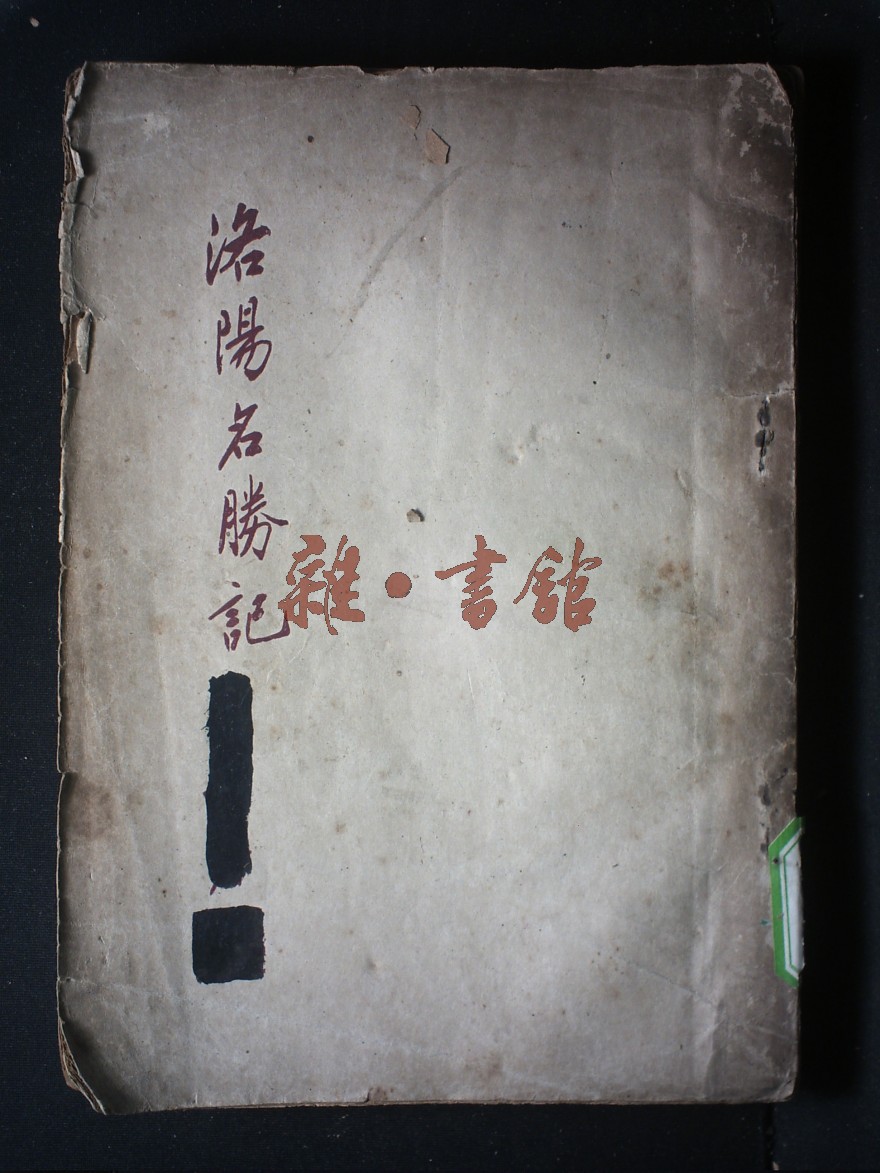 洛陽名勝記
雜·書館